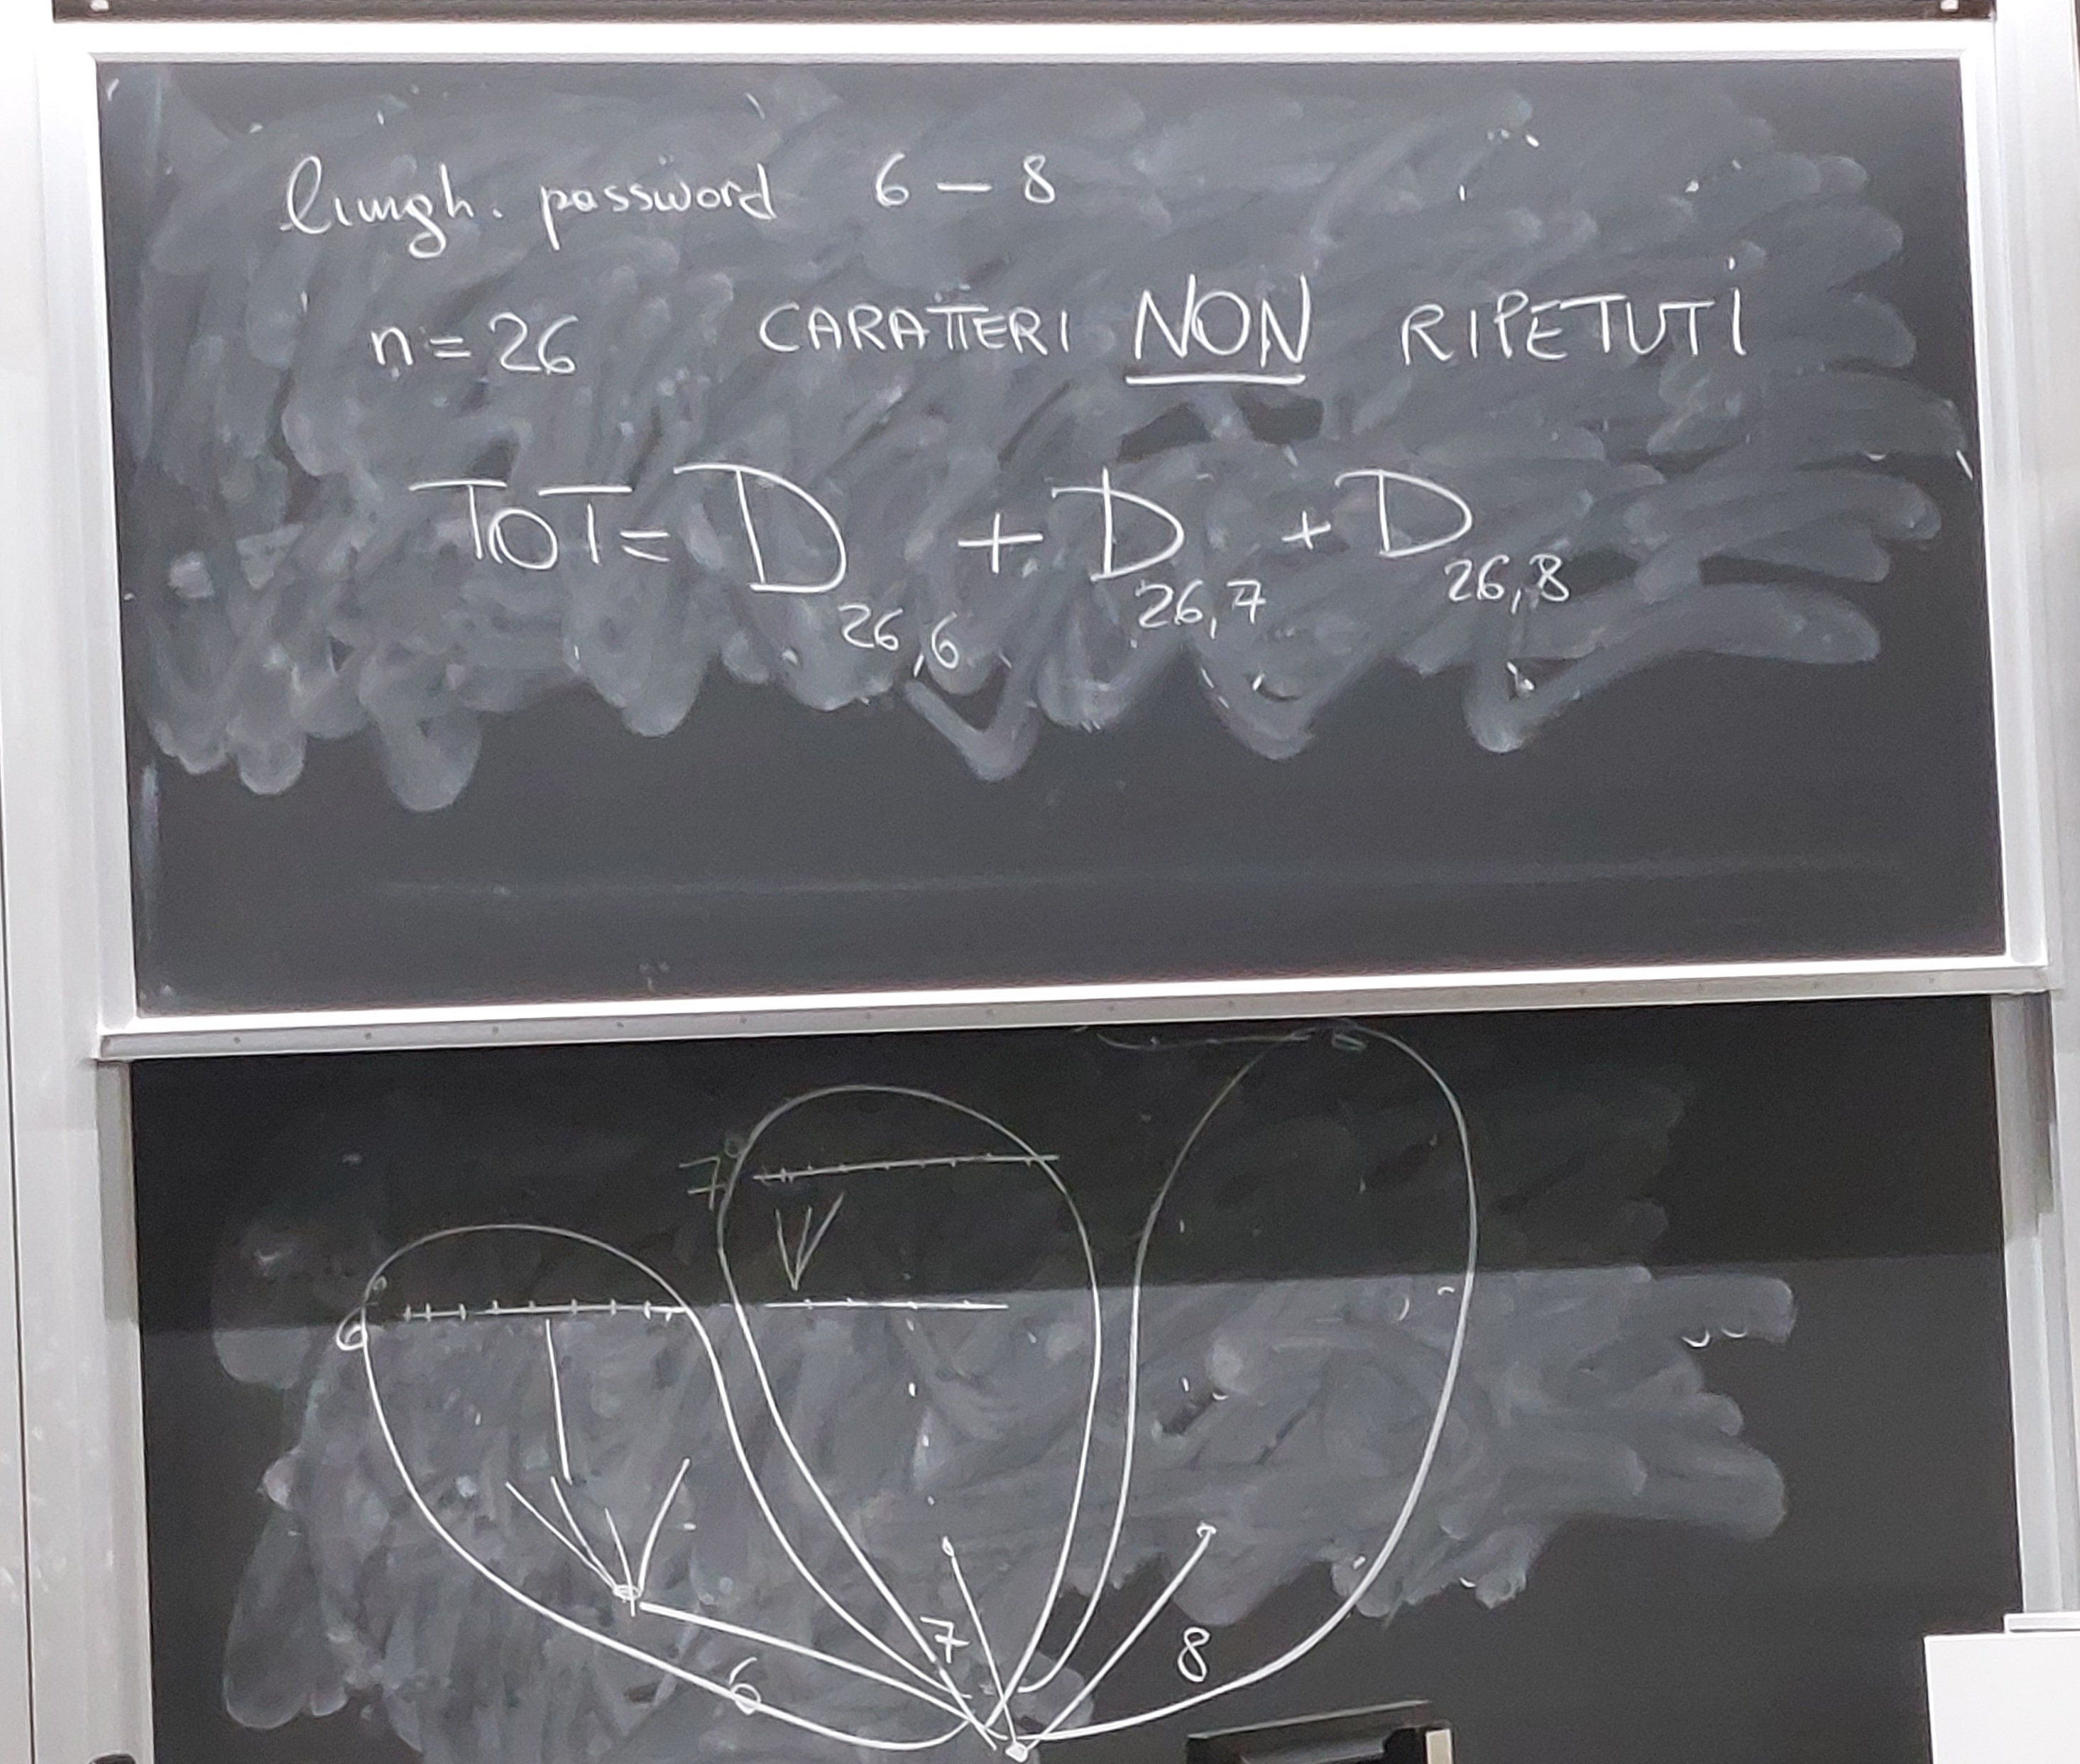 lungh. password 6 – 8
n = 26 CARATTERI NON RIPETUTI
TOT = D26,6 + D26,7 + D26,8
7°
6°
7
8
6